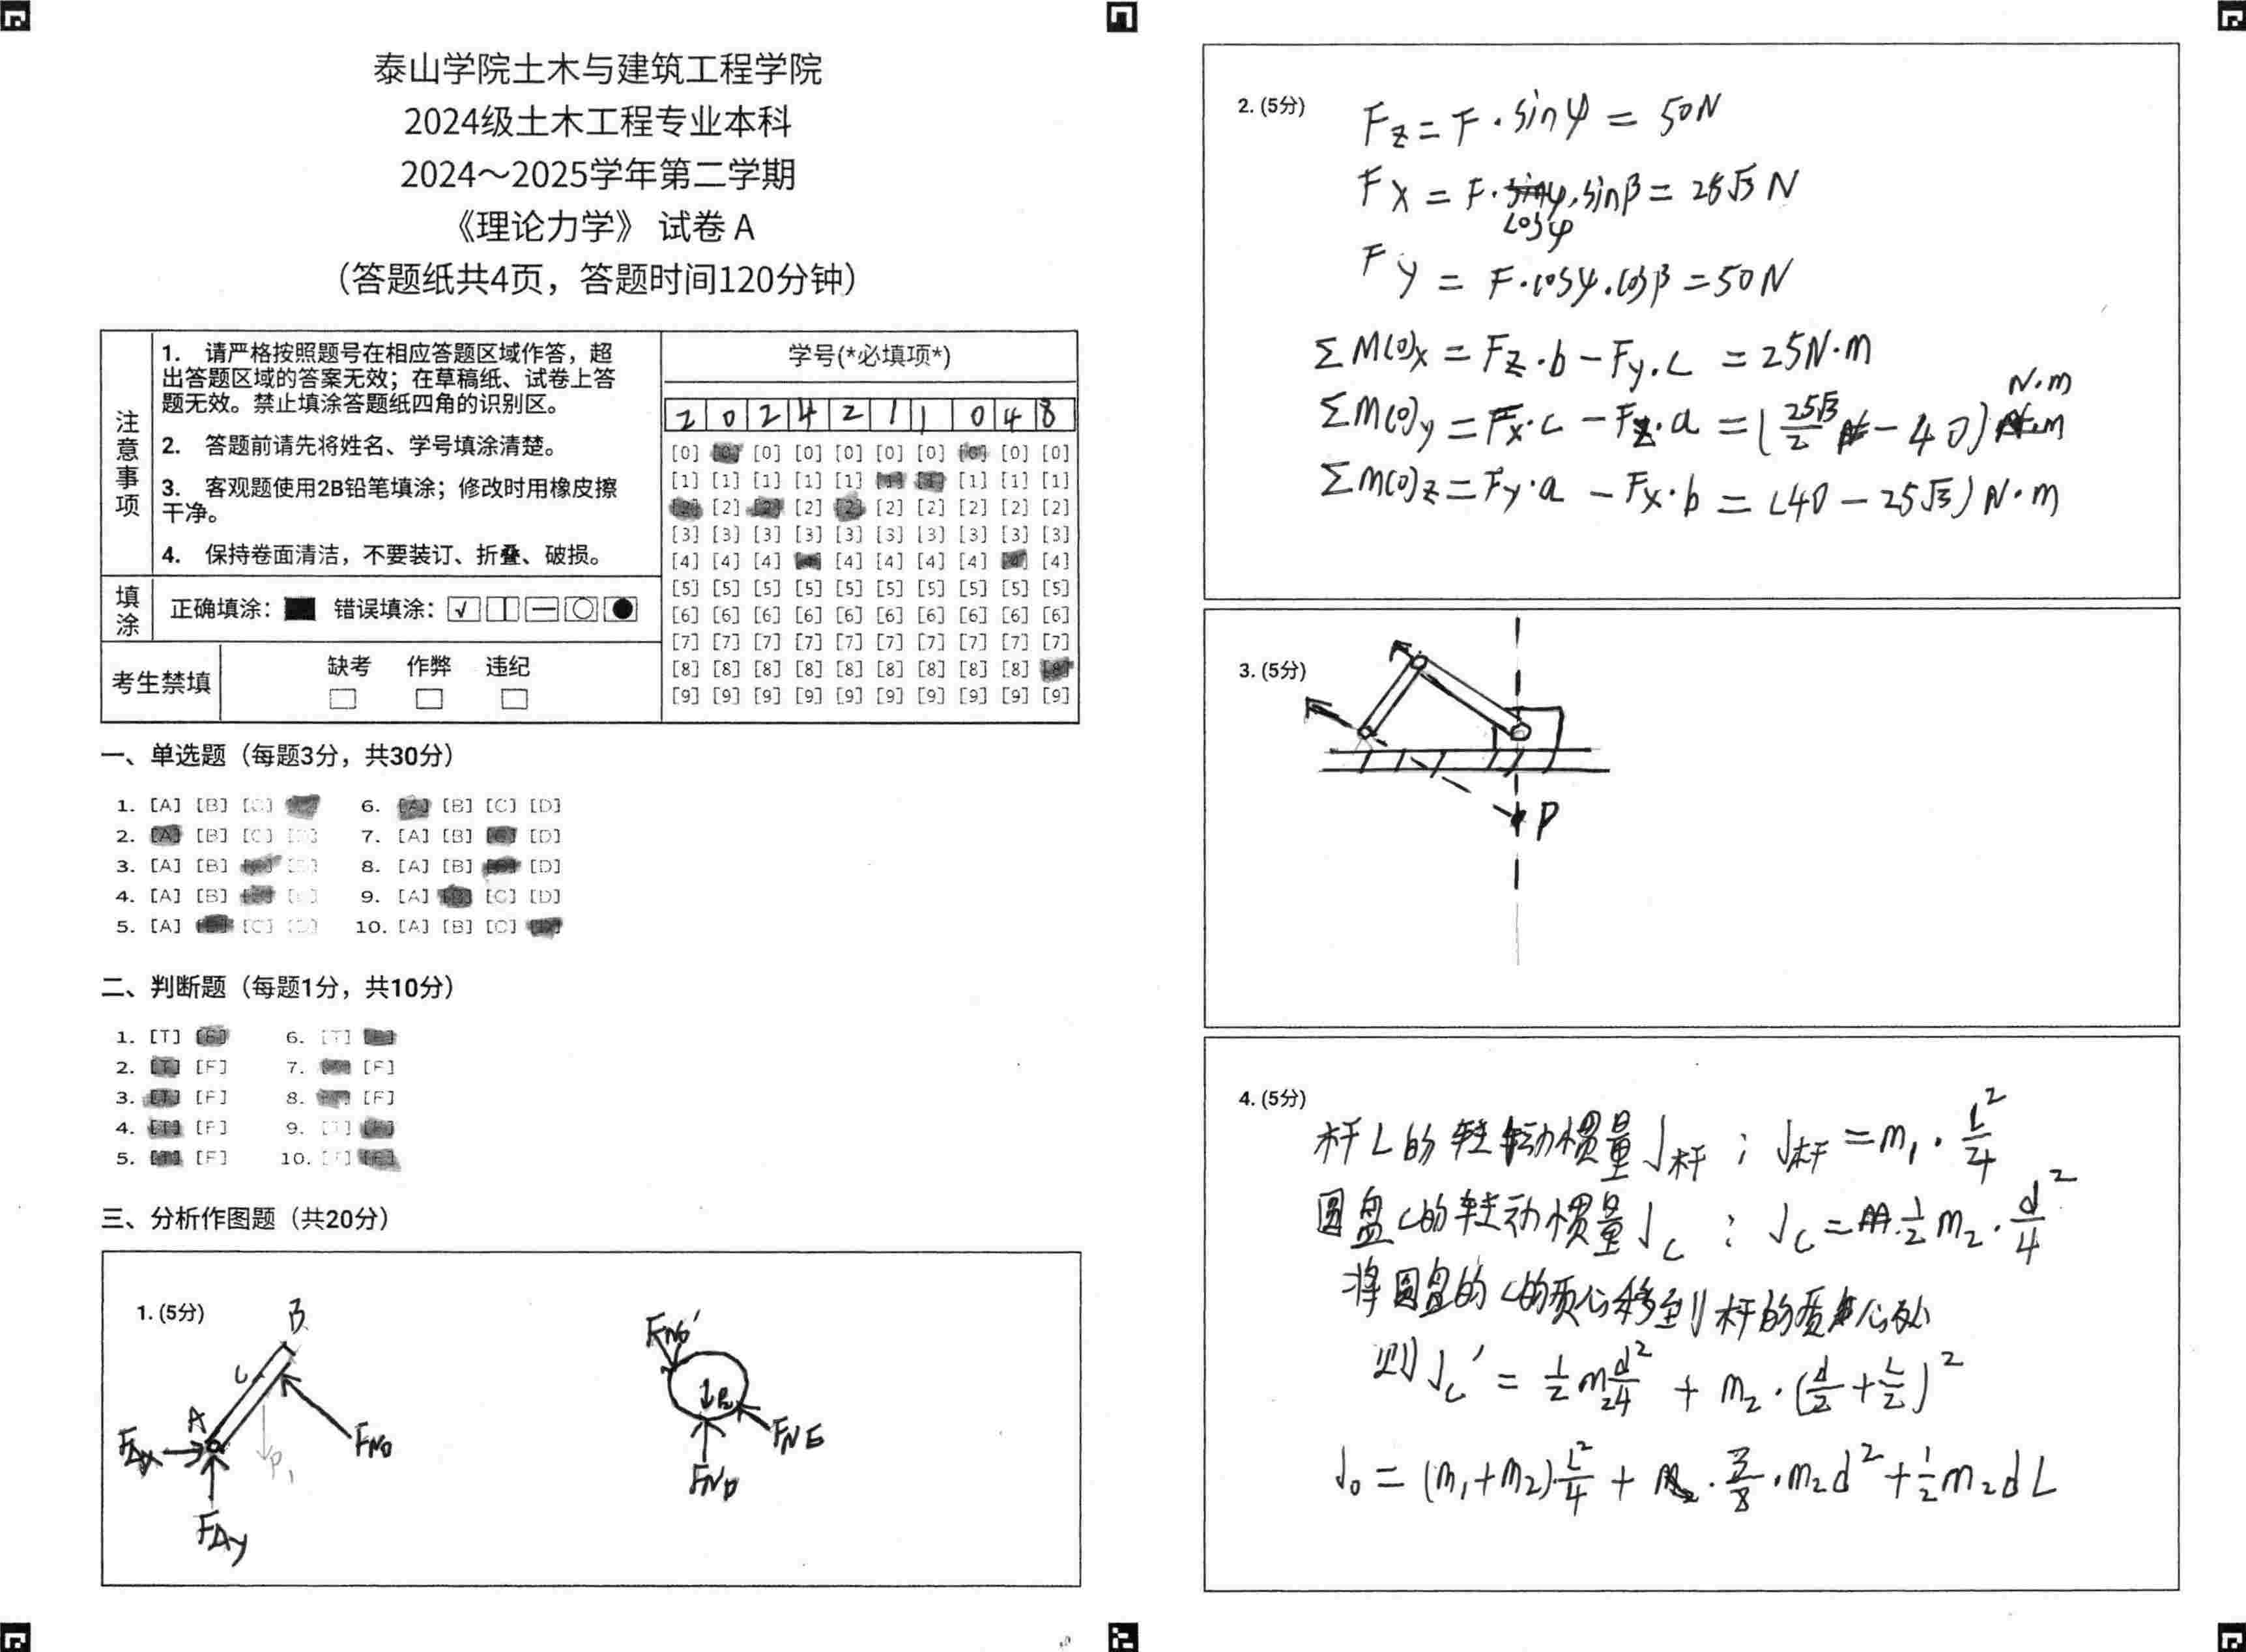 泰山学院土木与建筑工程学院
2024级土木工程专业本科
2024～2025学年第二学期
《理论力学》 试卷 A
（答题纸共4页，答题时间120分钟）
注意事项
1. 请严格按照题号在相应答题区域作答，超
出答题区域的答案无效；在草稿纸、试卷上答
题无效。禁止填涂答题纸四角的识别区。
2. 答题前请先将姓名、学号填涂清楚。
3. 客观题使用2B铅笔填涂；修改时用橡皮擦
干净。
4. 保持卷面清洁，不要装订、折叠、破损。
填涂
正确填涂： 错误填涂：
考生禁填
缺考 作弊 违纪
学号(*必填项*)
2 0 2 4 2 1 1 0 4 8
[0] [0] [0] [0] [0] [0] [0] [0] [0] [0]
[1] [1] [1] [1] [1] [1] [1] [1] [1] [1]
[2] [2] [2] [2] [2] [2] [2] [2] [2] [2]
[3] [3] [3] [3] [3] [3] [3] [3] [3] [3]
[4] [4] [4] [4] [4] [4] [4] [4] [4]
[5] [5] [5] [5] [5] [5] [5] [5] [5] [5]
[6] [6] [6] [6] [6] [6] [6] [6] [6] [6]
[7] [7] [7] [7] [7] [7] [7] [7] [7] [7]
[8] [8] [8] [8] [8] [8] [8] [8] [8] [8]
[9] [9] [9] [9] [9] [9] [9] [9] [9] [9]
一、单选题（每题3分，共30分）
1. [A] [B] [C] 6. [A] [B] [C] [D]
2. [A] [B] [C] [D] 7. [A] [B] [C] [D]
3. [A] [B] [D] 8. [A] [B] [D]
4. [A] [B] 9. [A] [B] [C] [D]
5. [A] [C] [D] 10. [A] [B] [C] [D]
二、判断题（每题1分，共10分）
1. [T] [F] 6. [T] [F]
2. [T] [F] 7. [F]
3. [T] [F] 8. [F]
4. [T] [F] 9. [T] [F]
5. [T] [F] 10. [T] [F]
三、分析作图题（共20分）
1. (5分)
B
C
A
FAx
FAy
P1
FND
FND'
P2
FNE
2. (5分)
Fz = F · sinφ = 50N
Fx = F · cosφ · sinβ = 25√3 N
Fy = F · cosφ · cosβ = 50N
ΣM(0)x = Fz · b − Fy · c = 25N·m
ΣM(0)y = Fx · c − Fz · a = (25√3/2 − 40) N·m
ΣM(0)z = Fy · a − Fx · b = (40 − 25√3) N·m
3. (5分)
P
4. (5分)
杆L的转动惯量J杆 ; J杆 = m1 · L²/4
圆盘C的转动惯量Jc : Jc = 1/2 m2 · d²/4
将圆盘的C的质心移到杆的质心处
则Jc' = 1/2 m2 d²/4 + m2 · (d/2 + L/2)²
J0 = (m1 + m2) · L²/4 + · 3/8 · m2d² + 1/2 m2dL